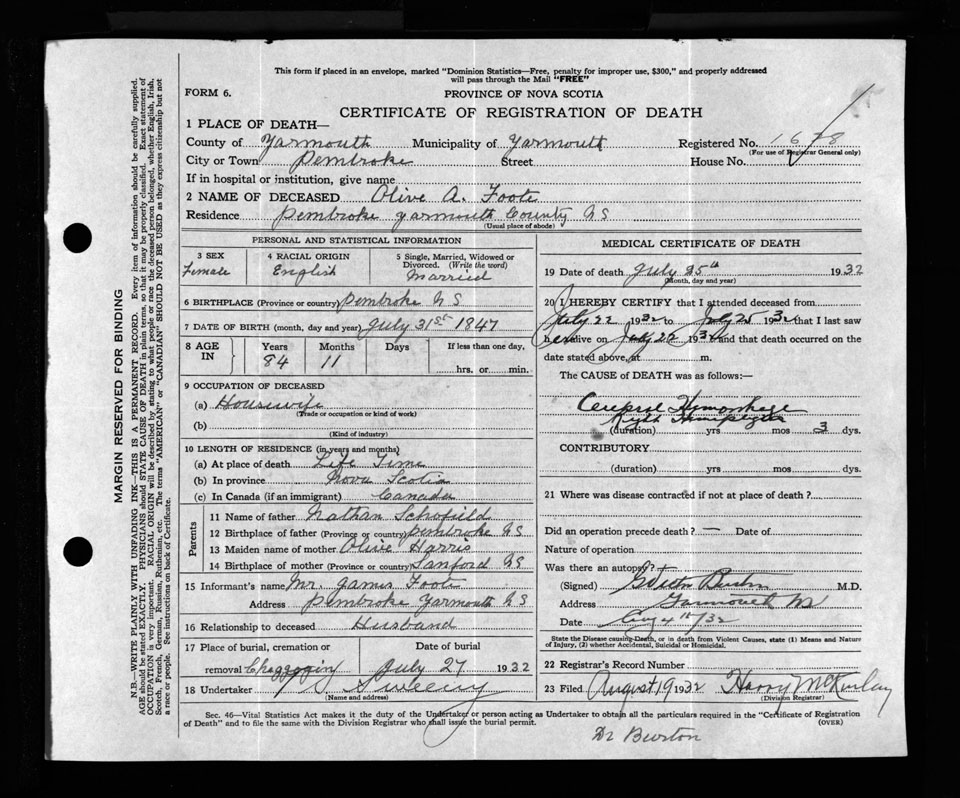 This form if placed in an envelope, marked "Dominion Statistics—Free, penalty for improper use, $300," and properly addressed
will pass through the Mail "FREE"
FORM 6.
PROVINCE OF NOVA SCOTIA
CERTIFICATE OF REGISTRATION OF DEATH
1 PLACE OF DEATH—
County of Yarmouth Municipality of Yarmouth Registered No. 1678
(For use of Registrar General only)
City or Town Pembroke Street House No.
If in hospital or institution, give name
2 NAME OF DECEASED Olive A. Foote
Residence Pembroke Yarmouth County NS
(Usual place of abode)
PERSONAL AND STATISTICAL INFORMATION
3 SEX 4 RACIAL ORIGIN 5 Single, Married, Widowed or
Divorced. (Write the word)
Female English Married
6 BIRTHPLACE (Province or country) Pembroke NS
7 DATE OF BIRTH (month, day and year) July 31st 1847
8 AGE IN Years Months Days If less than one day,
84 11 hrs. or min.
9 OCCUPATION OF DECEASED
(a) Housewife
(Trade or occupation or kind of work)
(b)
(Kind of industry)
10 LENGTH OF RESIDENCE (in years and months)
(a) At place of death Life Time
(b) In province Nova Scotia
(c) In Canada (if an immigrant) Canada
Parents
11 Name of father Nathan Schofield
12 Birthplace of father (Province or country) Pembroke NS
13 Maiden name of mother Olive Harris
14 Birthplace of mother (Province or country) Sanford NS
15 Informant's name Mr. James Foote
Address Pembroke Yarmouth NS
16 Relationship to deceased Husband
17 Place of burial, cremation or Date of burial
removal July 27 1932
18 Undertaker Sweeny
(Name and address)
MEDICAL CERTIFICATE OF DEATH
19 Date of death July 25th 1932
(Month, day and year)
20 I HEREBY CERTIFY that I attended deceased from
July 22 1932 to July 25 1932 that I last saw
her alive on July 25 1932 and that death occurred on the
date stated above, at m.
The CAUSE of DEATH was as follows:—
Cerebral Hemorrhage
Right Hemiplegia
(duration) yrs mos 3 dys.
CONTRIBUTORY
(duration) yrs mos dys.
21 Where was disease contracted if not at place of death?
Did an operation precede death? — Date of
Nature of operation
Was there an autopsy?
(Signed) Burton M.D.
Address Yarmouth NS
Date Aug 4th/32
State the Disease causing Death, or in death from Violent Causes, state (1) Means and Nature
of Injury, (2) whether Accidental, Suicidal or Homicidal.
22 Registrar's Record Number
23 Filed August 19 1932 Harry McKinlay
(Division Registrar)
Sec. 46—Vital Statistics Act makes it the duty of the Undertaker or person acting as Undertaker to obtain all the particulars required in the "Certificate of Registration
of Death" and to file the same with the Division Registrar who shall issue the burial permit. (OVER)
Dr Burton
MARGIN RESERVED FOR BINDING
N.B.—WRITE PLAINLY WITH UNFADING INK—THIS IS A PERMANENT RECORD. Every item of information should be carefully supplied.
AGE should be stated EXACTLY. PHYSICIANS should STATE CAUSE OF DEATH in plain terms, so that it may be properly classified. Exact statement of
OCCUPATION is very important. RACIAL ORIGIN will be described by stating to what people or race the deceased person belonged, whether English, Irish,
Scotch, French, German, Russian, Ruthenian, etc. The terms "AMERICAN" or "CANADIAN" SHOULD NOT BE USED as they express citizenship but not
a race or people. See instructions on back of Certificate.